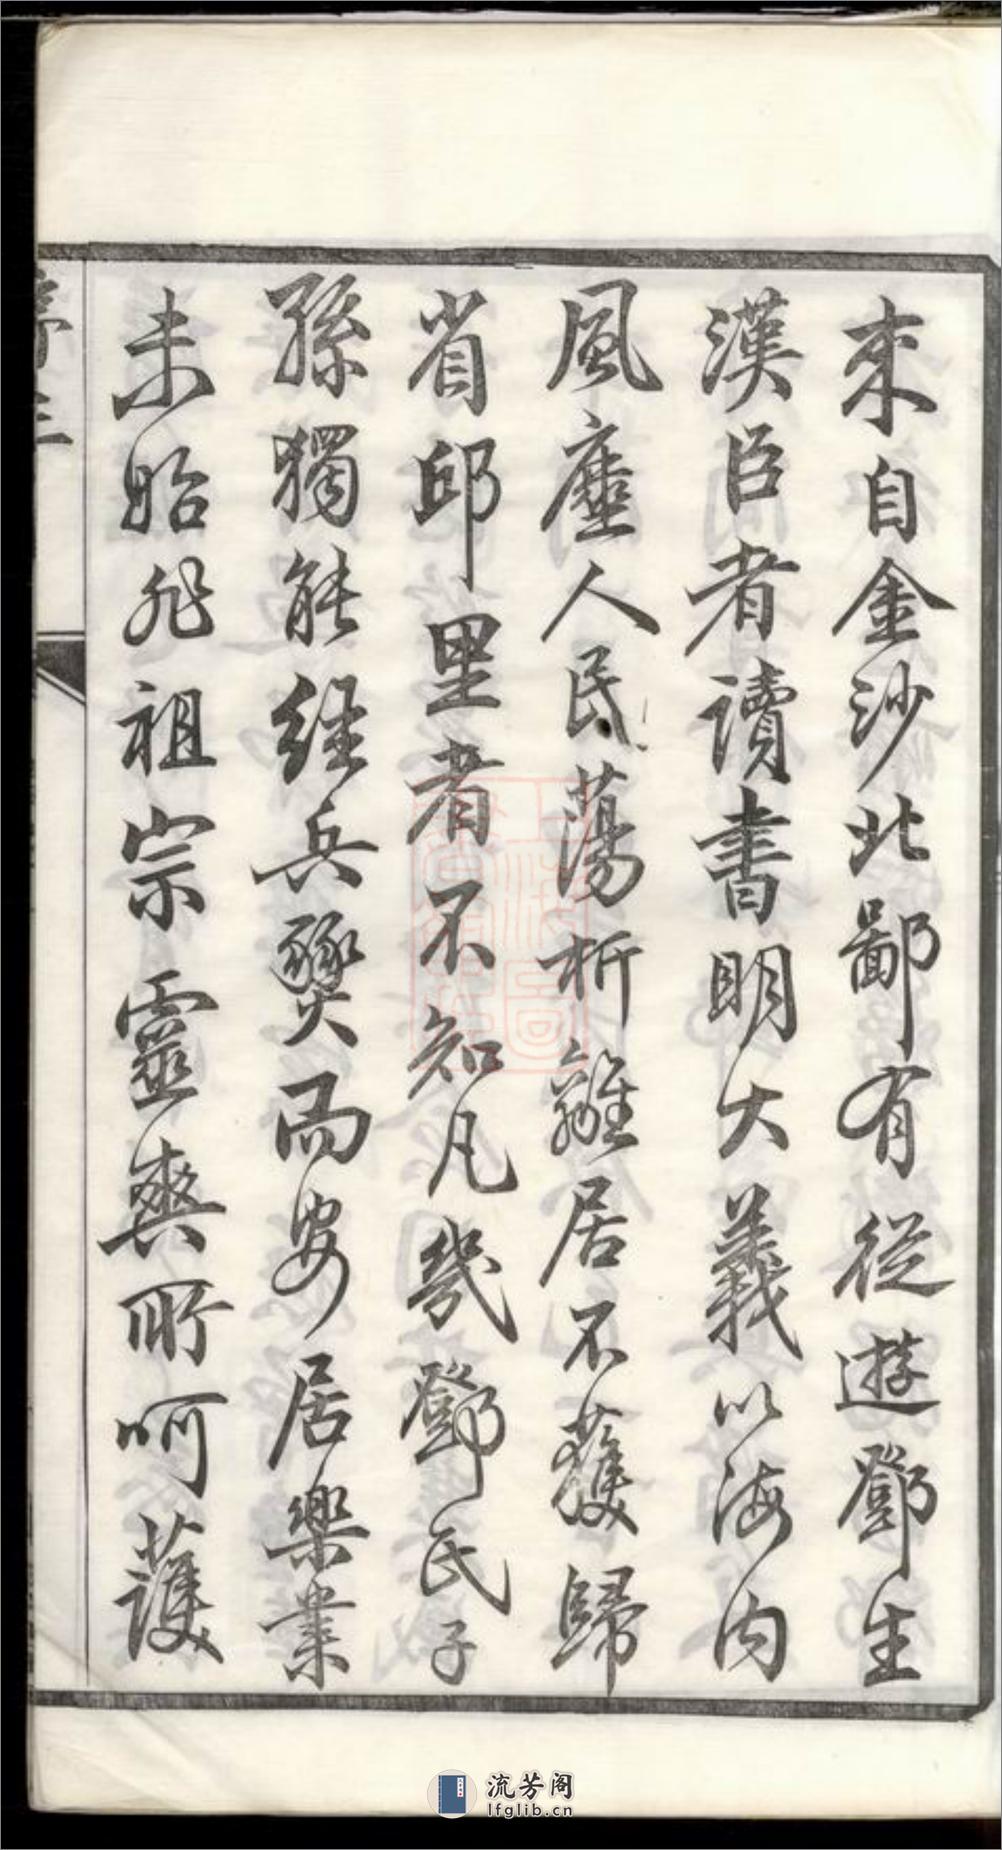 來自金沙北鄙有從遊鄧生
漢臣者讀書明大義以海内
風塵人民蕩析離居不獲歸
省邱里者不知凡幾鄧氏子
孫獨能經兵燹而安居樂業
未始非祖宗靈爽所呵護
序三
流芳阁
lfglib.cn